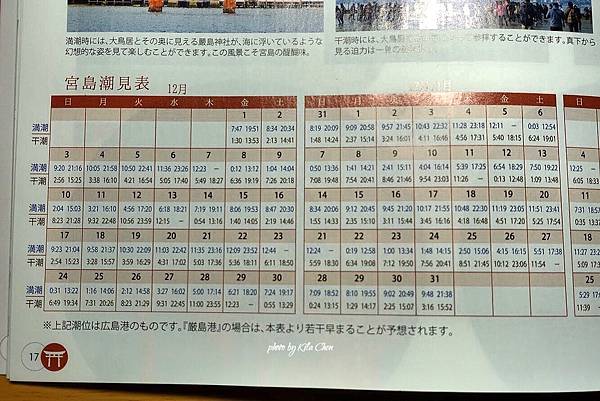 満潮時には、大鳥居とその奥に見える厳島神社が、海に浮いているような
幻想的な姿を見て楽しむことができます。この風景こそ宮島の醍醐味。
することができます。真下から
見る迫力は一
宮島潮見表 12月
日 月 火 水 木 金 土
1 2
満潮 7:47 19:51 8:34 20:34
干潮 1:30 13:53 2:13 14:41
3 4 5 6 7 8 9
満潮 9:20 21:16 10:05 21:58 10:50 22:41 11:36 23:26 12:23 － 0:12 13:12 1:04 14:04
干潮 2:56 15:25 3:38 16:10 4:21 16:54 5:05 17:40 5:49 18:27 6:36 19:19 7:26 20:18
10 11 12 13 14 15 16
満潮 2:04 15:03 3:21 16:10 4:56 17:20 6:18 18:21 7:19 19:11 8:06 19:53 8:47 20:30
干潮 8:23 21:28 9:32 22:48 10:56 23:59 12:15 － 0:54 13:16 1:40 14:05 2:19 14:46
17 18 19 20 21 22 23
満潮 9:23 21:04 9:58 21:37 10:30 22:09 11:03 22:42 11:35 23:16 12:09 23:52 12:44 －
干潮 2:54 15:23 3:28 15:57 3:59 16:29 4:31 17:02 5:03 17:36 5:36 18:11 6:11 18:50
24 25 26 27 28 29 30
満潮 0:31 13:22 1:16 14:06 2:12 14:58 3:27 16:02 5:00 17:14 6:21 18:20 7:24 19:17
干潮 6:49 19:34 7:31 20:26 8:23 21:29 9:31 22:45 11:00 23:55 12:23 － 0:55 13:29
1月
日 月 火 水 木 金 土
31 1 2 3 4 5 6
8:19 20:09 9:09 20:58 9:57 21:45 10:43 22:32 11:28 23:18 12:11 － 0:03 12:54
1:48 14:24 2:37 15:14 3:24 16:01 4:11 16:46 4:56 17:31 5:40 18:15 6:24 19:01
7 8 9 10 11 12 13
0:50 13:36 1:41 14:21 2:41 15:11 4:04 16:14 5:39 17:25 6:54 18:29 7:50 19:22
7:08 19:48 7:54 20:41 8:46 21:46 9:54 23:03 11:26 － 0:13 12:48 1:09 13:48
14 15 16 17 18 19 20
8:34 20:06 9:12 20:45 9:45 21:20 10:17 21:55 10:48 22:30 11:19 23:05 11:51 23:41
1:55 14:33 2:35 15:10 3:11 15:44 3:45 16:16 4:18 16:48 4:51 17:20 5:25 17:54
21 22 23 24 25 26 27
12:24 － 0:19 12:58 1:00 13:34 1:48 14:15 2:50 15:06 4:15 16:15 5:51 17:38
5:59 18:30 6:34 19:08 7:12 19:50 7:56 20:41 8:51 21:45 10:12 23:06 11:54 －
28 29 30 31
7:09 18:52 8:10 19:55 9:02 20:49 9:48 21:38
0:24 13:15 1:29 14:17 2:25 15:07 3:16 15:52
※上記潮位は広島港のものです。『厳島港』の場合は、本表より若干早まることが予想されます。
photo by Kila Chen
17